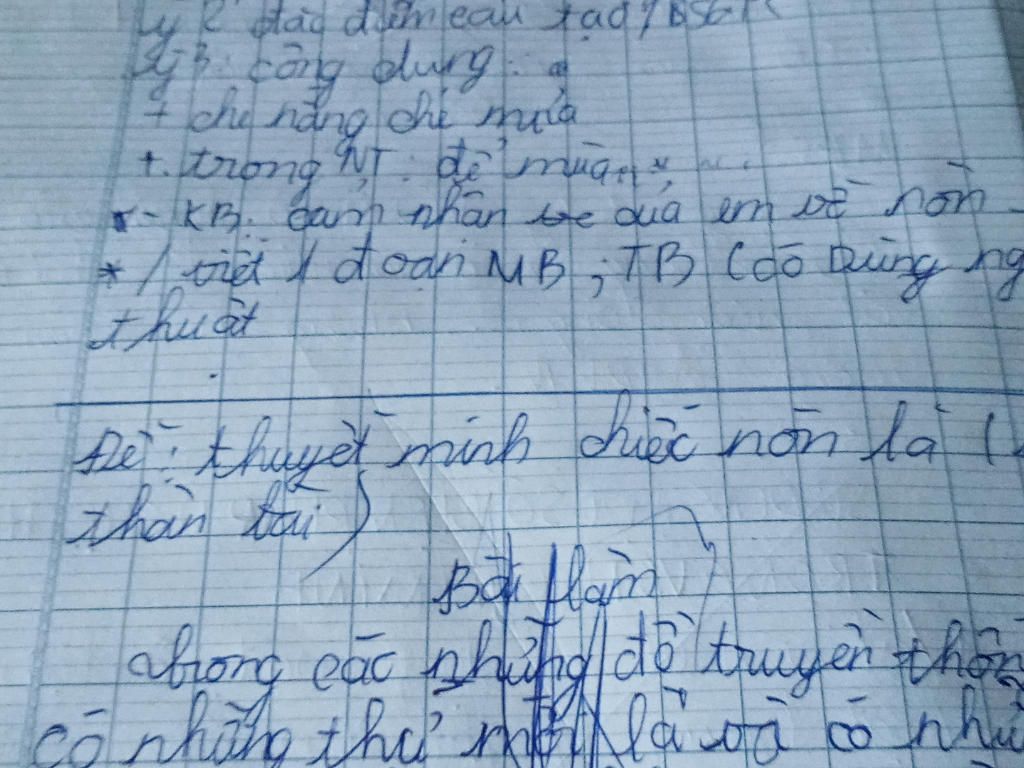 ý 2 đặc điểm cấu tạo /
ý 3: công dụng:
+ che nắng che mưa
+. trong NT: để múa
- KB: cảm nhận của em về nón
* / viết 1 đoạn MB ; TB (có Dùng
thuật
Đề: thuyết minh chiếc nón lá (
thân bài)
Bài làm
trong các những đồ truyền
có những thứ là và có